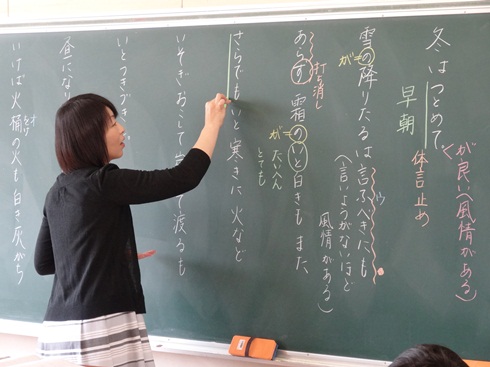 が良い(風情がある)
冬は つとめて。
体言止め
早朝
雪の降りたるは言ふべきにも
が
ウ
(言いようがないほど
風情がある)
あらず 霜のいと白きもまた
打ち消し
が
たいへん
とても
さらでもいと寒きに 火など
いそぎおこして て渡るも
いとつきづき
昼にな
いけば火桶の火も白き灰がち
おけ